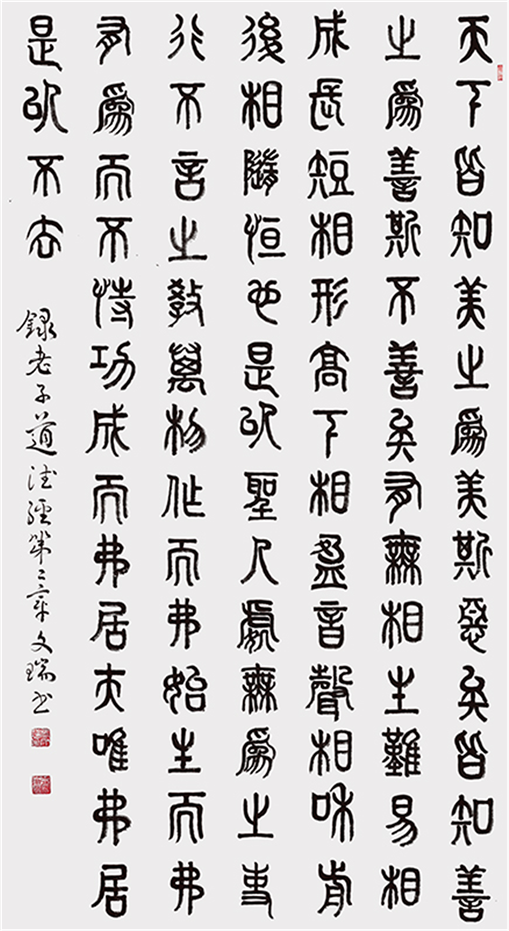 天下皆知美之爲美斯惡矣皆知善
之爲善斯不善矣有無相生難易相
成長短相形高下相盈音聲相和前
後相隨恒也是以聖人處無爲之事
行不言之教萬物作而弗始生而弗
有爲而不恃功成而弗居夫唯弗居
是以不去
錄老子道德經第二章文瑞书